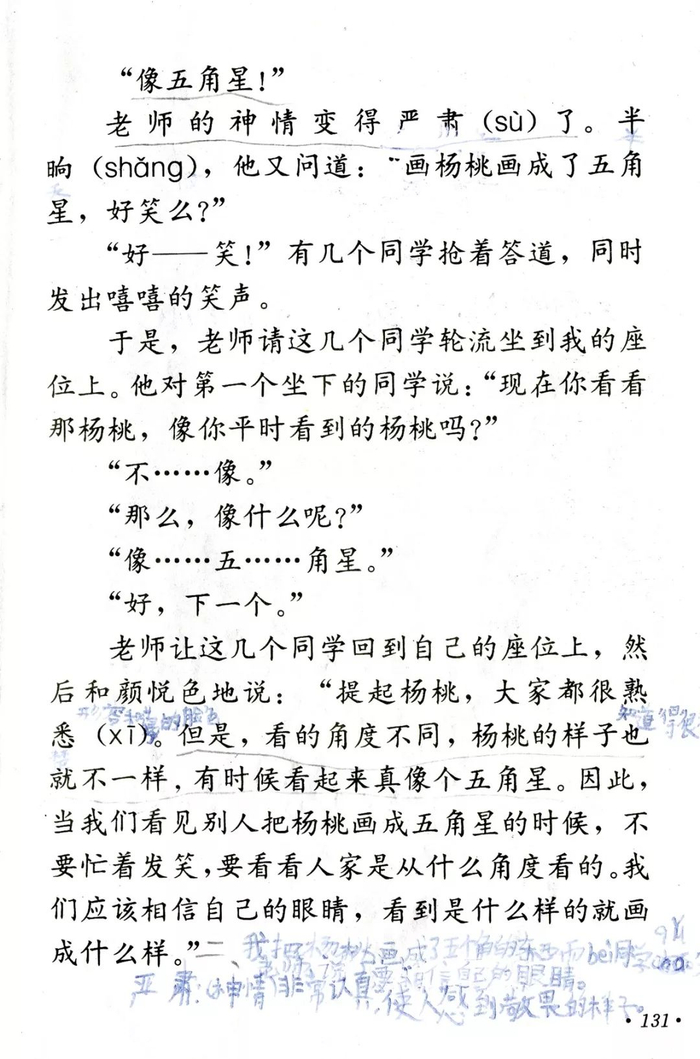 “像五角星！”
老师的神情变得严肃（sù）了。半
晌（shǎng），他又问道：“画杨桃画成了五角
星，好笑么？”
“好——笑！”有几个同学抢着答道，同时
发出嘻嘻的笑声。
于是，老师请这几个同学轮流坐到我的座
位上。他对第一个坐下的同学说：“现在你看看
那杨桃，像你平时看到的杨桃吗？”
“不……像。”
“那么，像什么呢？”
“像……五……角星。”
“好，下一个。”
老师让这几个同学回到自己的座位上，然
后和颜悦色地说：“提起杨桃，大家都很熟
的脸色 知道得很
悉（xī）。但是，看的角度不同，杨桃的样子也
就不一样，有时候看起来真像个五角星。因此，
当我们看见别人把杨桃画成五角星的时候，不
要忙着发笑，要看看人家是从什么角度看的。我
们应该相信自己的眼睛，看到是什么样的就画
成什么样。”
二、我把杨桃画成了五个角的东西而bei同学
要 自己的眼睛。
严肃：神情非常认真，使人感到敬畏的样子。
·131·